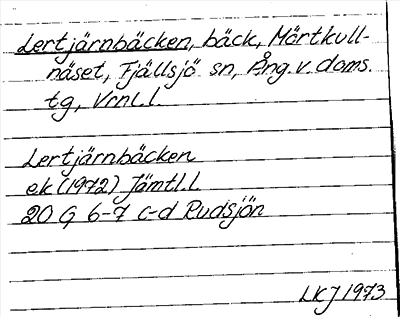 Lertjärnbäcken, bäck, Mörtkull-
näset, Fjällsjö sn, Ång.v. doms.
tg, Vrnl.l.
Lertjärnbäcken
ek (1972) Jämtl.l.
20 G 6-7 c-d Rudsjön
LKJ 1973